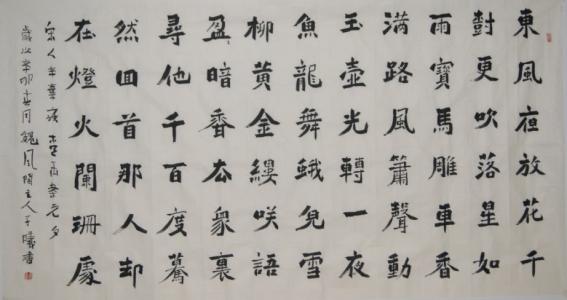 東風夜放花千
樹更吹落星如
雨寶馬雕車香
滿路風簫聲動
玉壺光轉一夜
魚龍舞蛾兒雪
柳黃金縷咲語
盈暗香去衆裏
尋他千百度驀
然回首那人却
在燈火闌珊處
宋人辛棄疾青玉案元夕
歲次辛卯 月 風閣主人 書